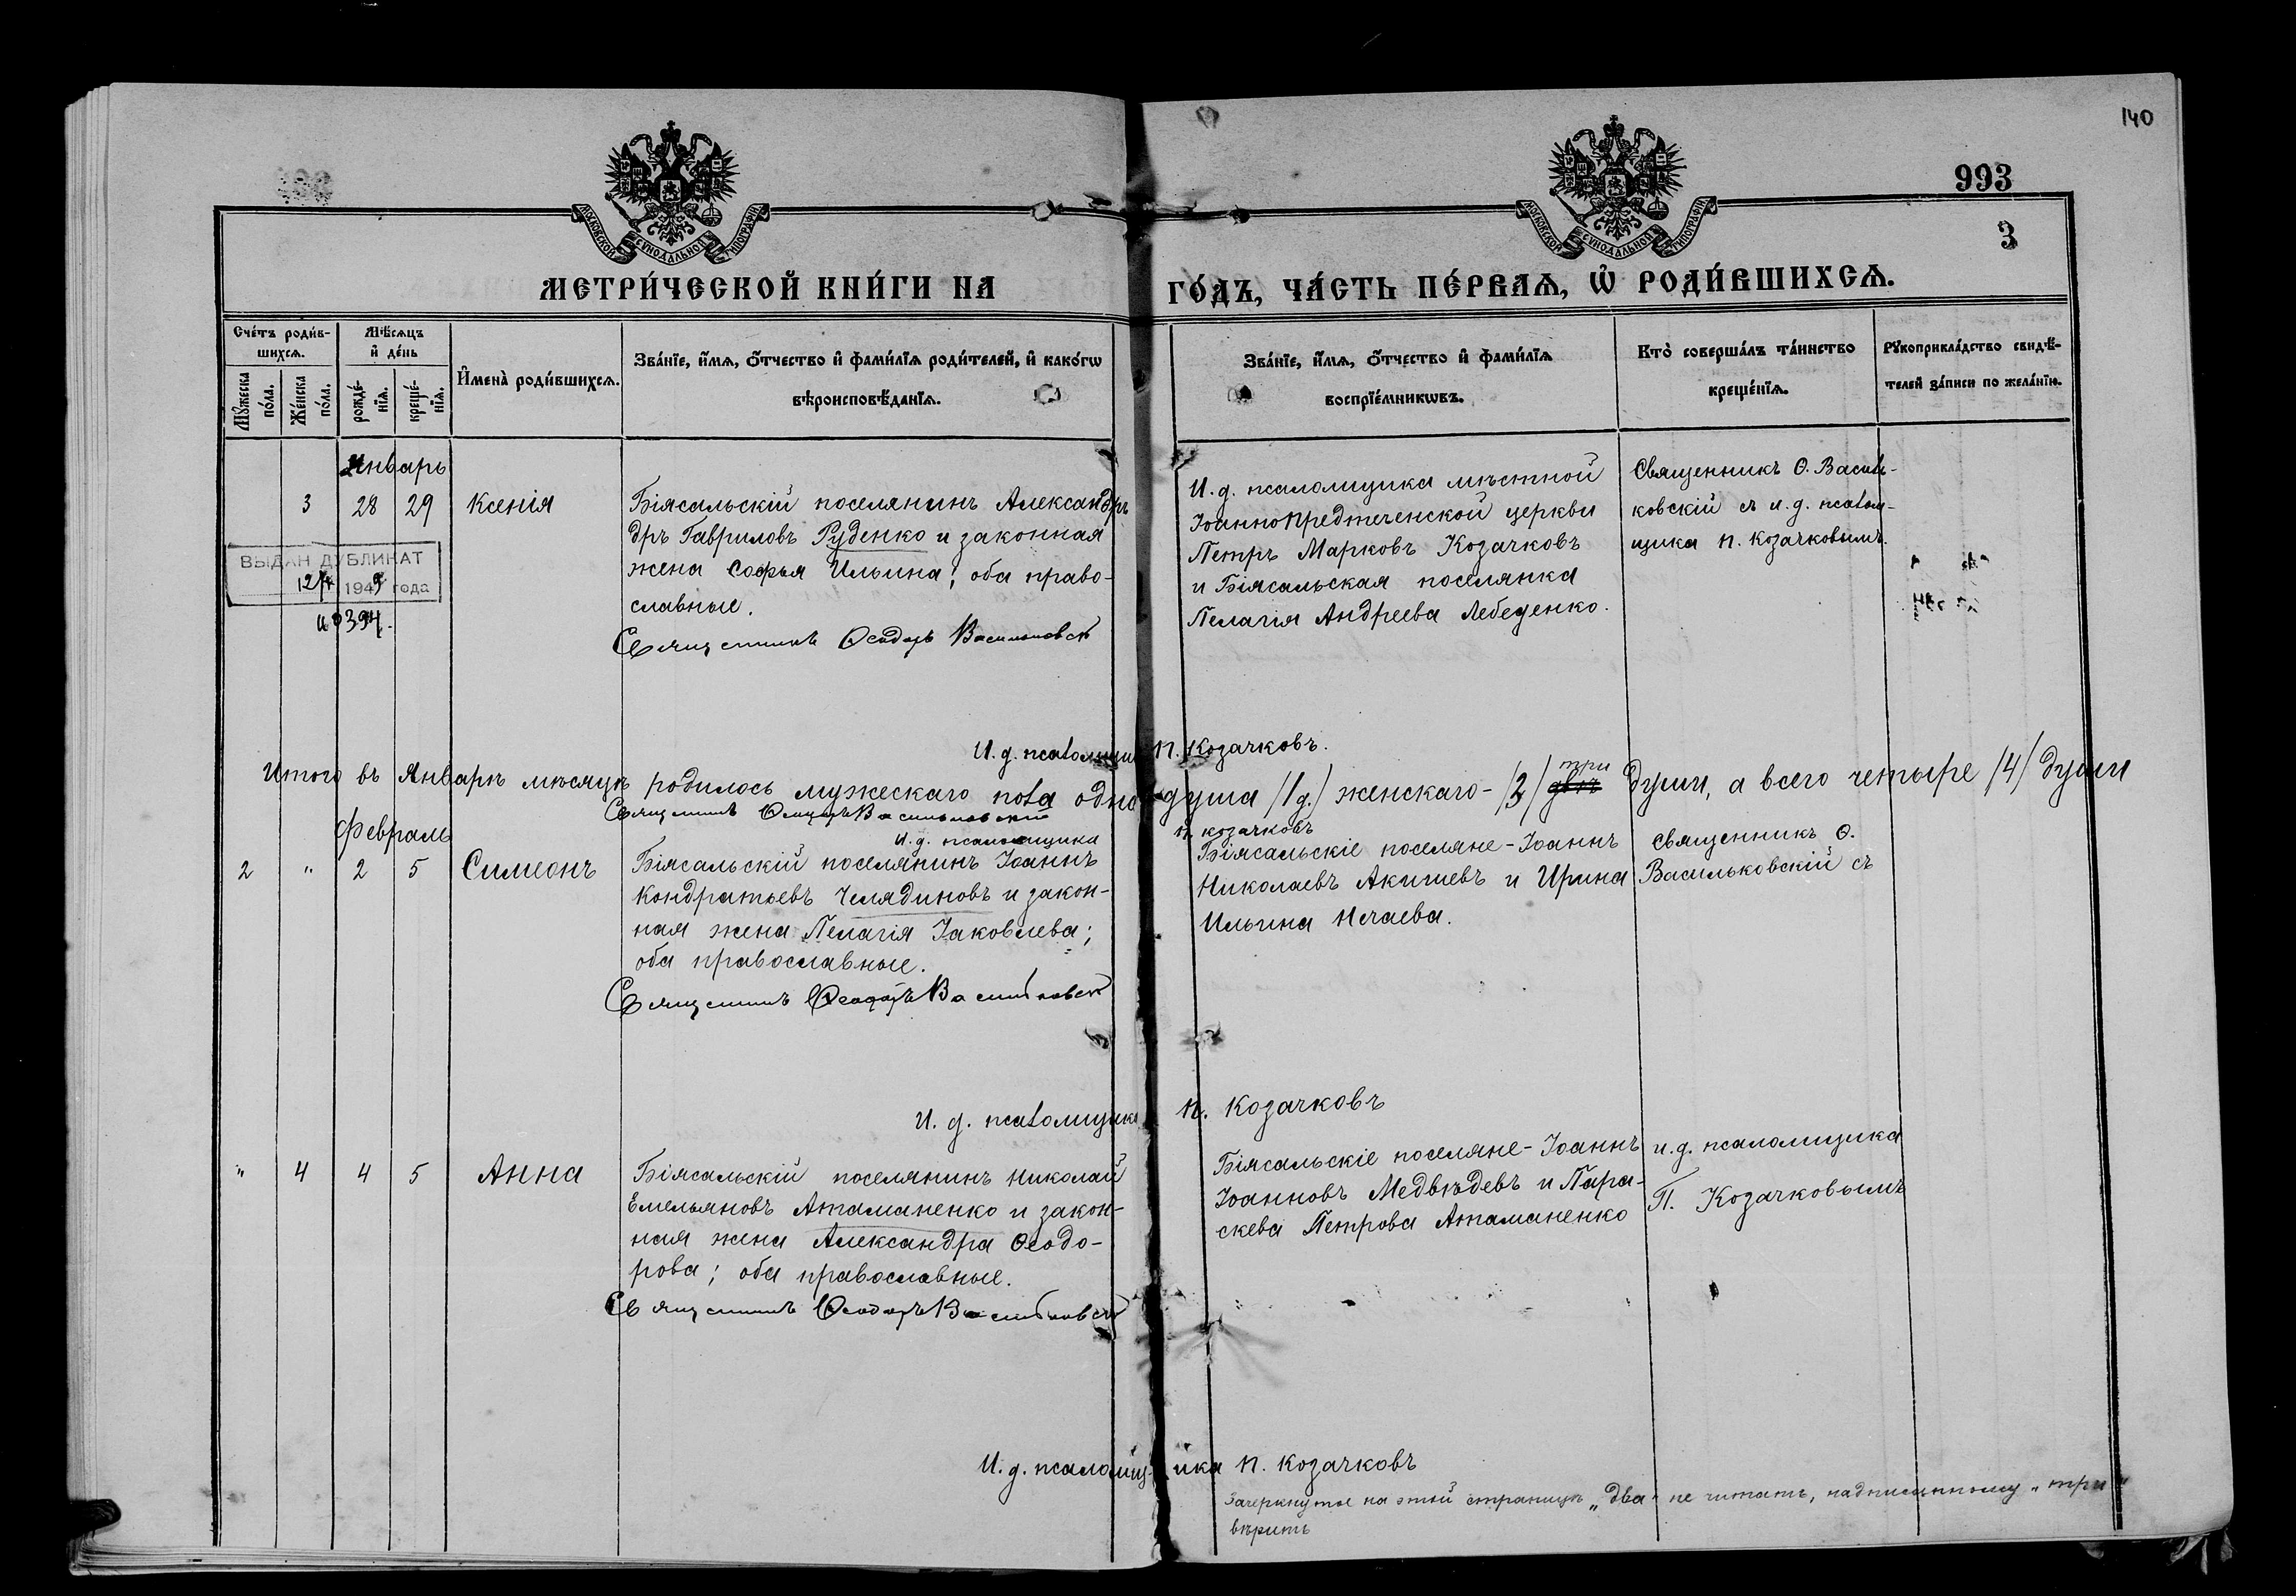 140
993
3
МОСКОВСКОЙ СѴНОДАЛЬНОЙ ТИПОГРАФІИ
МОСКОВСКОЙ СѴНОДАЛЬНОЙ ТИПОГРАФІИ
МЕТРИ́ЧЕСКОЙ КНИ́ГИ НА ГО́ДЪ, ЧА́СТЬ ПЕ́РВАѦ, Ѡ РОДИ́ВШИХСѦ.
Сче́тъ роди́в-
шихсѧ.
Мꙋ́жеска по́ла.
Же́нска по́ла.
Мѣ́сѧцъ
и҆ де́нь
рожде́-
нїѧ.
креще́-
нїѧ.
И҆мена̀ роди́вшихсѧ.
Зва́нїе, и҆́мѧ, ѻ҆́тчество и҆ фами́лїѧ роди́телей, и҆ како́гѡ
вѣроисповѣ́данїѧ.
Зва́нїе, и҆́мѧ, ѻ҆́тчество и҆ фами́лїѧ
воспрїе́мникѡвъ.
Кто̀ соверша́лъ та́инство
креще́нїѧ.
Рꙋкоприкла́дство свидѣ́-
телей за́писи по жела́нїю.
Январь
3 28 29 Ксенія
Біясальскій поселянинъ Александръ
дръ Гавриловъ Руденко и законная
жена Софья Ильина; оба право-
славные.
Священникъ Ѳеодоръ Васильковск
ВЫДАН ДУБЛИКАТ
194 года
И. д. псаломщика мѣстной
Іоанно Предтеченской церкви
Петръ Марковъ Козачковъ
и Біясальская поселянка
Пелагія Андреева Лебеденко.
Священникъ Ѳ. Василь-
ковскій съ и. д. псалом-
щика П. Козачковымъ.
И. д. псаломщик П. Козачковъ.
Итого въ Январѣ мѣсяцѣ родилось мужескаго пола одна душа /1 д./ женскаго - /3/ двѣ три души, а всего четыре /4/ души
Священникъ Ѳеодоръ Васильковскій
И. д. псаломщика П. Козачковъ
Февраль
2 " 2 5 Симеонъ
Біясальскій поселянинъ Іоаннъ
Кондратьевъ Челядиновъ и закон-
ная жена Пелагія Іаковлева;
оба православные.
Священникъ Ѳеодоръ Васильковск
Біясальскіе поселяне - Іоаннъ
Николаевъ Акишевъ и Ирина
Ильина Нечаева.
Священникъ Ѳ.
Васильковскій съ
И. д. псаломщика П. Козачковъ
" 4 4 5 Анна
Біясальскій поселянинъ Николай
Емельяновъ Атаманенко и закон-
ная жена Александра Ѳеодо-
рова; оба православные.
Священникъ Ѳеодоръ Васильковск
Біясальскіе поселяне - Іоаннъ
Іоанновъ Медвѣдевъ и Пара-
скева Петрова Атаманенко
и. д. псаломщика
П. Козачковымъ
И. д. псаломщика П. Козачковъ
Зачеркнутое на этой страницѣ „два" не читать, надписанному „три"
вѣрить